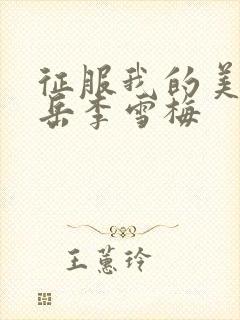 征服我的美
岳李雪梅
王蕙玲